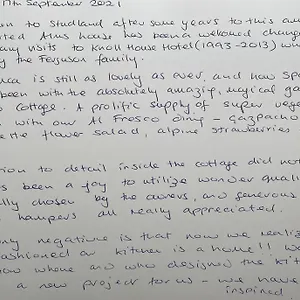 17th September 2021
n to Studland after some years to this am
ted Alms house has been a welcomed change
any visits to Knoll House Hotel (1993-2013) wh
by the Ferguson family.
is still as lovely as ever, and how spo
been with the absolutely amazing, magical ga
Cottage. A prolific supply of super vege
with our Al Fresco dining - Gazpacho
flower salad, alpine strawberries
tion to detail inside the cottage did not
s been a joy to utilize wonder quali
ully chosen by the owners, and generous
hampers all really appreciated.
only negative is that now we realiz
fashioned our kitchen is at home!! We
now where and who designed the kit
a new project for us - we have
inspired